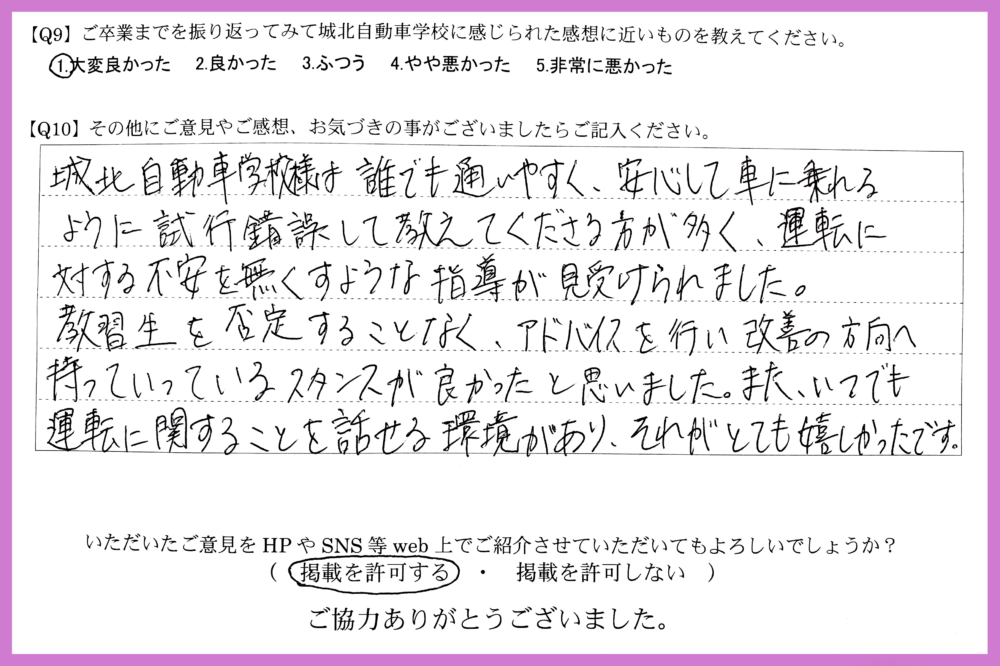 【Q9】ご卒業までを振り返ってみて城北自動車学校に感じられた感想に近いものを教えてください。
1.大変良かった 2.良かった 3.ふつう 4.やや悪かった 5.非常に悪かった
【Q10】その他にご意見やご感想、お気づきの事がございましたらご記入ください。
城北自動車学校様は誰でも通いやすく、安心して車に乗れる
ように試行錯誤して教えてくださる方が多く、運転に
対する不安を無くすような指導が見受けられました。
教習生を否定することなく、アドバイスを行い改善の方向へ
持っていっているスタンスが良かったと思いました。また、いつでも
運転に関することを話せる環境があり、それがとても嬉しかったです。
いただいたご意見をHPやSNS等web上でご紹介させていただいてもよろしいでしょうか？
（ 掲載を許可する ・ 掲載を許可しない ）
ご協力ありがとうございました。